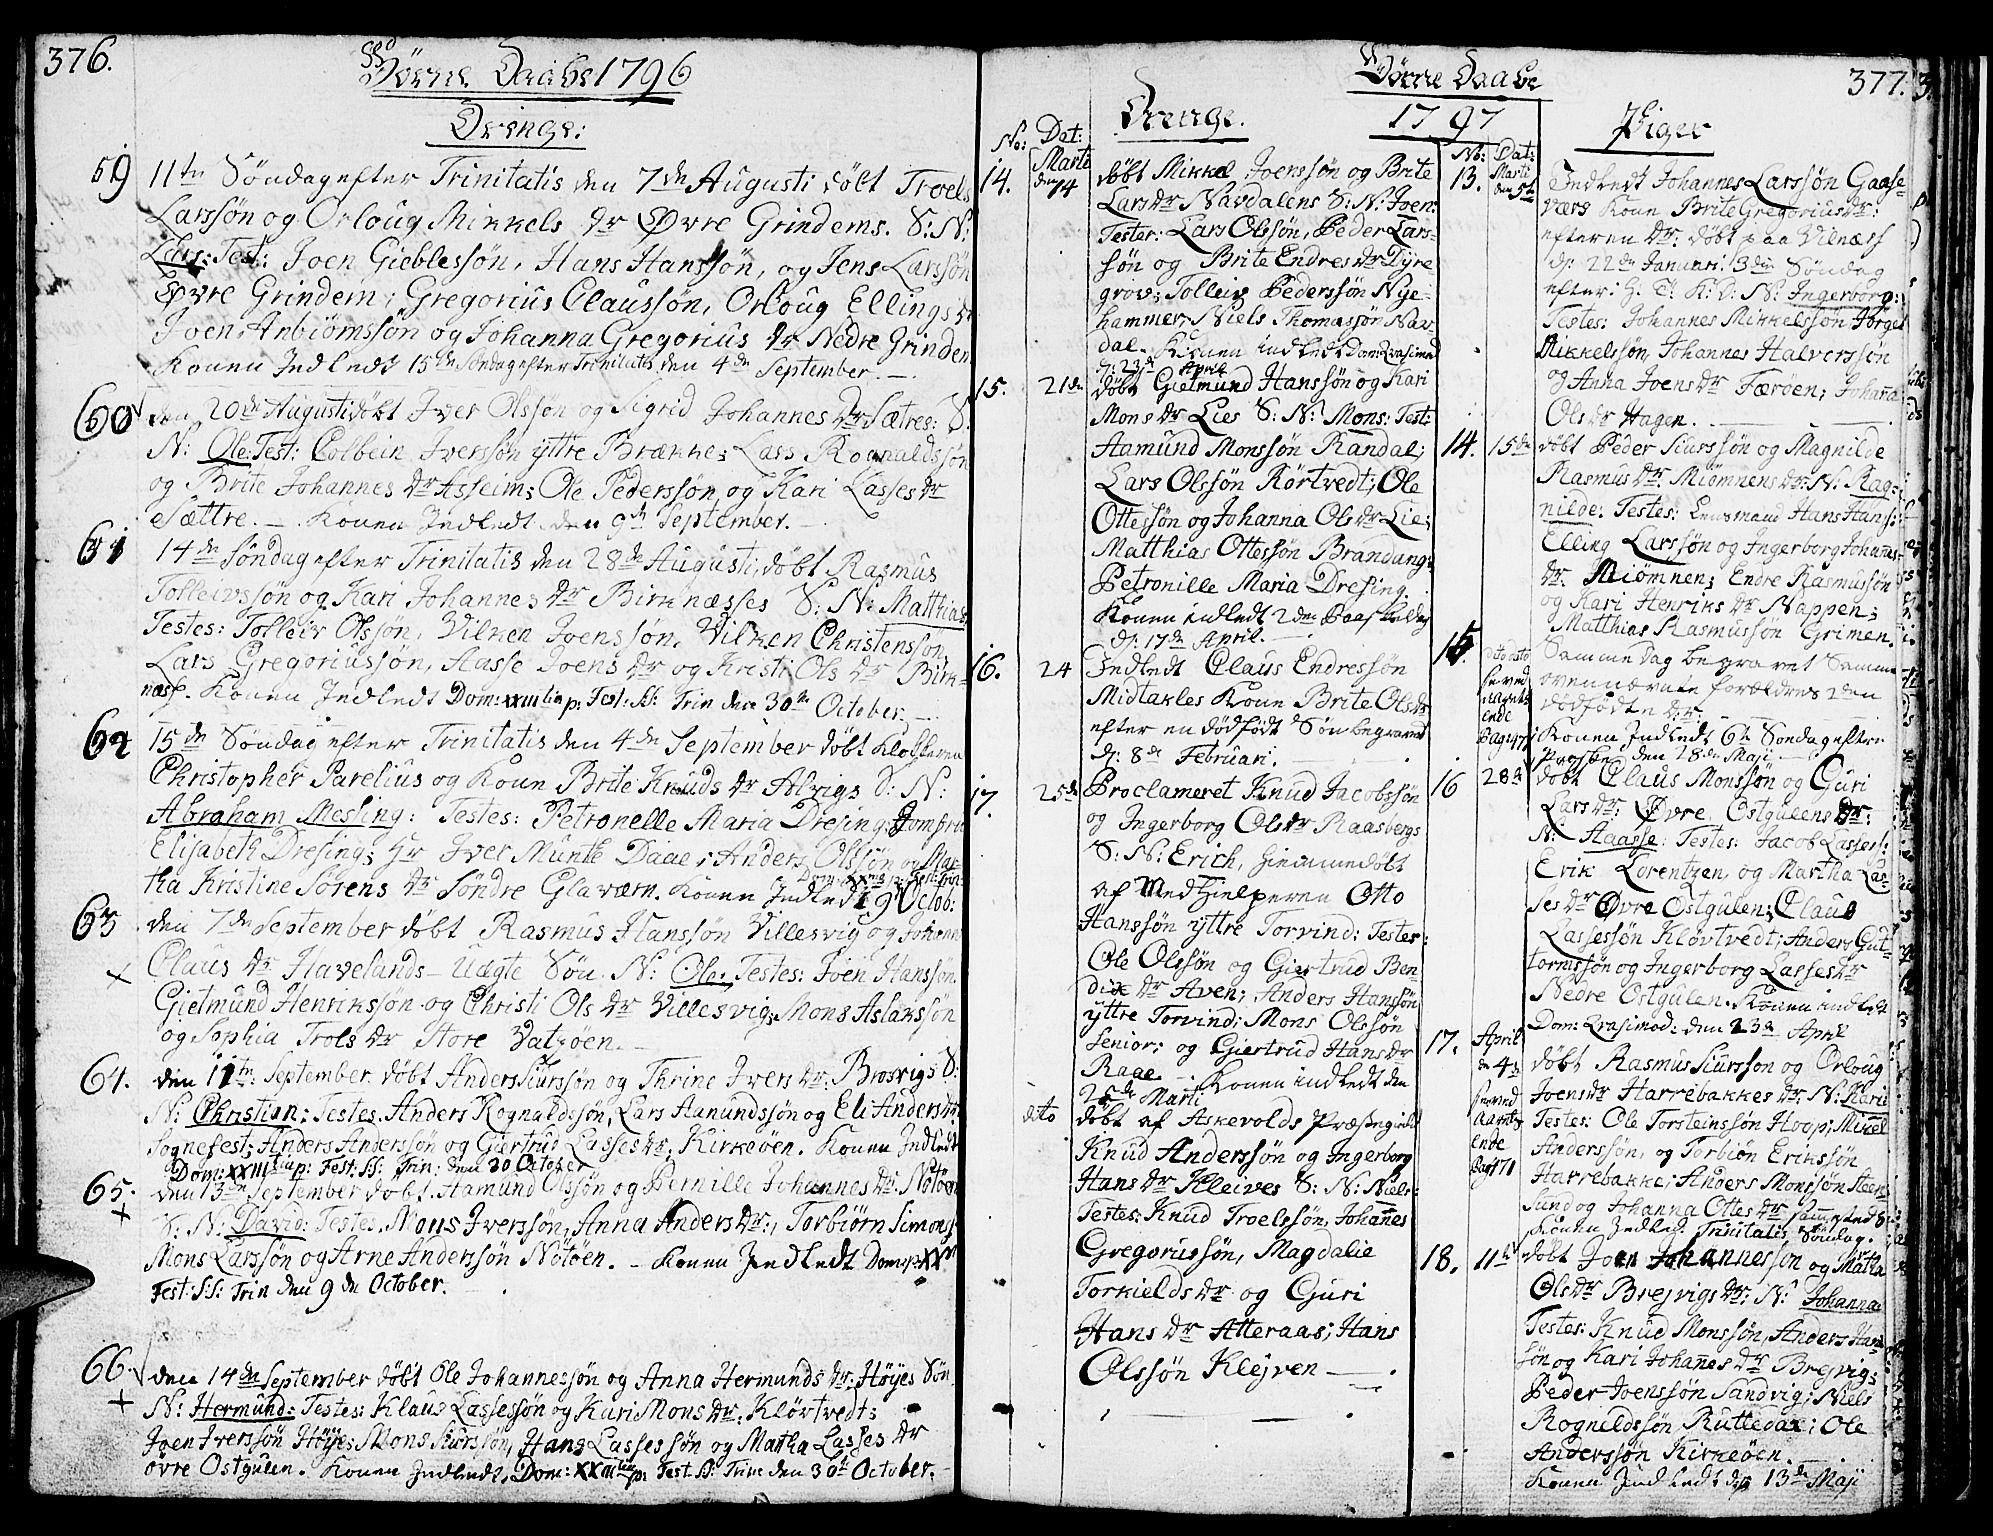 376.
Börne Daabe 1796
Drenge:
59 11te Söndag efter Trinitatis den 7de Augusti döbt Troels
Larssön og Orloug Mikkels dr Øvre Grindems. S: N:
Lars: Test: Joen Gieblessön, Hans Hanssön, og Jens Larssön
Øvre Grindem; Gregorius Claussön, Orloug Ellings dr
Joen Anbiörnssön og Johanna Gregorius dr Nedre Grindem
Konen Indledt 15de Söndag efter Trinitatis den 4de September. —
60 den 20de Augusti döbt Iver Olssön og Sigrid Johannes dr Sætres: S:
N: Ole: Test: Colbein Iverssön yttre Brække; Lars Rognaldssön
og Brite Johannes dr Asseim; Ole Pederssön og Kari Lasses dr
Sættre. — Konen Indledt den 9de September. —
61 14de Söndag efter Trinitatis den 28de Augusti, döbt Rasmus
Tolleivssön og Kari Johannes dr Birknæsses S: N: Matthias
Testes: Tolleiv Olssön, Vilken Joenssön, Vilken Christenssön
Lars Gregoriussön, Aasse Joens dr og Kristi Ols dr Birk-
næss. Konen Indledt Dom: XXIII tia p: Fest: S: Trin den 30te October. —
62 15de Söndag efter Trinitatis den 4de September döbt Klokkeren
Christopher Parelius og Koun Brite Knuds dr Alvigs S: N:
Abraham Mesling: Testes: Petronelle Maria Dresing; Jomfru
Elisabeth Dresing; Hr Iver Munte Daae; Anders Olssön og Mar-
tha Kristine Sörens dr Söndre Glaværn. Konen Indledt 9de Octob:
63 den 7de September döbt Rasmus Hanssön Villesvig og Johann
Claus dr Havelands Uægte Sön. N: Ole: Testes: Joen Hanssön
Gietmund Henrikssön og Christi Ols dr Villesvig; Mons Aslakssön
og Sophia Trols dr Store Vatzöen. —
64. den 11te September döbt Anders Siurssön og Thrine Ivers dr. Brosvigs S:
N: Christian: Testes. Anders Rognaldssön, Lars Aamundssön og Eli Anders dr
Sognefest; Anders Anderssön og Giertrud Lasses dr. Kirkeöen. Konen Indledt
Dom: XXIII tia p: Fest: SS: Trin: den 30 October
65. den 13de September döbt Aamund Olssön og Pernille Johannes dr: Nötöen
S: N: David: Testes. Mons Iverssön, Anna Anders dr:, Torbiörn Simons
Mons Larssön og Arne Anderssön Nötöen. — Konen Indledt Dom: XX
Fest: SS: Trin den 9de October. —
66. den 14de September döbt Ole Johannessön og Anna Hermunds dr. Höyes Sön
N: Hermund: Testes: Klaus Lassessön og Kari Mons dr. Klövtvedt;
Joen Iverssön Höye; Mons Siurssön, Hans Lassessön og Matha Lasses dr
övre Ostgulen. Konen Indledt. Dom: XXIII tia p: Fest. SS: Trin den 30te October. —
Börne Daabe
377.
1797
Drenge.
No: Dat:
14. Marti den 14 döbt Mikkel Joenssön og Brite
Lars dr Navdalens S: N: Joen:
Testes: Lars Olssön, Peder Lars-
sön og Brite Endres dr Dyre
grov; Tolleiv Pederssön Nye-
hammer, Niels Thomassön Nav-
dal. Konen indledt Dom Qvasimod
d: 23de April
15. 21de döbt Gietmund Hanssön og Kari
Mons dr Lies S: N: Mons: Test:
Aamund Monssön Randal;
Lars Olssön Körtvedt; Ole
Ottessön og Johanna Ols dr Lie;
Matthias Ottessön Brandang;
Petronille Maria Dresing.
Konen indledt 2den Paaskedag
d: 17de April. —
16. 24 Indledt Claus Endressön
Midtakles Kone Brite Ols dr
efter en dödfödt Sön begravet
d: 8de Februari. —
17. 25de Proclameret Knud Jacobssön
og Ingerborg Ols dr Raasbergs
S: N: Erich, hiemmedöbt
af Medhielperen Otto
Hanssön yttre Torvind: Testes:
Ole Olssön og Giertrud Ben
dix dr Aven; Anders Hanssön
yttre Torvind; Mons Olssön
Senior; og Giertrud Hans dr
Raae. — Konen indledt den
25de Marti
dito döbt af Askevolds Præstegield
Knud Anderssön og Ingerborg
Hans dr Kleives S: N: Niels:
Testes: Knud Troelssön, Johañes
Gregoriussön, Magdalie
Torkields dr og Guri
Hans dr Atteraas; Hans
Olssön Klejven —
Piger
No: Dat:
13. Marti den 5te Indledt Johannes Larssön Gaase-
værs Koun Brite Gregorius dr:
efter en dr: döbt paa Vilnæss
d: 22de Januari 3die Söndag
efter: H: 3: K: D: N: Ingerborg:
Testes: Johannes Mikkelssön Jörgen
Mikkelssön, Johannes Halverssön
og Anna Joens dr Færöen; Johaña
Ols dr Hagen. —
14. 15de döbt Peder Siurssön og Magnilde
Rasmus dr. Miömnens dr: N: Rag-
nilde: Testes: Lensmand Hans Hans:
Elling Larssön og Ingerborg Johañes
dr. Miömnen; Endre Rasmussön
og Kari Henriks dr Nappen;
Matthias Rasmussön Grimen.
15. Samme dag begravet Samme
ovennævnte forældres den
dödfödte dr. —
Konen Indledt 6te Söndag efter
Paaske den 28de Maji. —
16 28de döbt Claus Monssön og Guri
Lars dr: Øvre Ostgulens dr:
N: Aaasse: Testes: Jacob Lasses:
Erik Lorentzen og Martha Las-
ses dr Øvre Ostgulen; Claus
Lassessön Klövtvedt; Anders Gut-
tormssön og Ingerborg Lasses dr
Nedre Ostgulen. Konen indledt
Dom: Qvasimod: den 23de April
17. April den 4de döbt Rasmus Siurssön og Orloug
Joens dr Harrebakkes dr: N: Kari
Testes: Ole Torsteinssön Hoop; Mikel
Anderssön, og Torbiön Erikssön
Harrebakke; Anders Monssön Steen-
sund og Johanna Ottes dr samested
Konen Indledt Trinitatis Söndag.
18. 11te döbt Joen Johannessön og Matha
Ols dr Brejvigs dr: N: Johanna
Testes: Knud Monssön, Anders Han-
sön og Kari Johañes dr Brejvig;
Peder Joenssön Sandvig; Niels
Rognildssön Ruttedal; Ole
Anderssön Kirkeöen.
Konen Indledt den 13de Maji